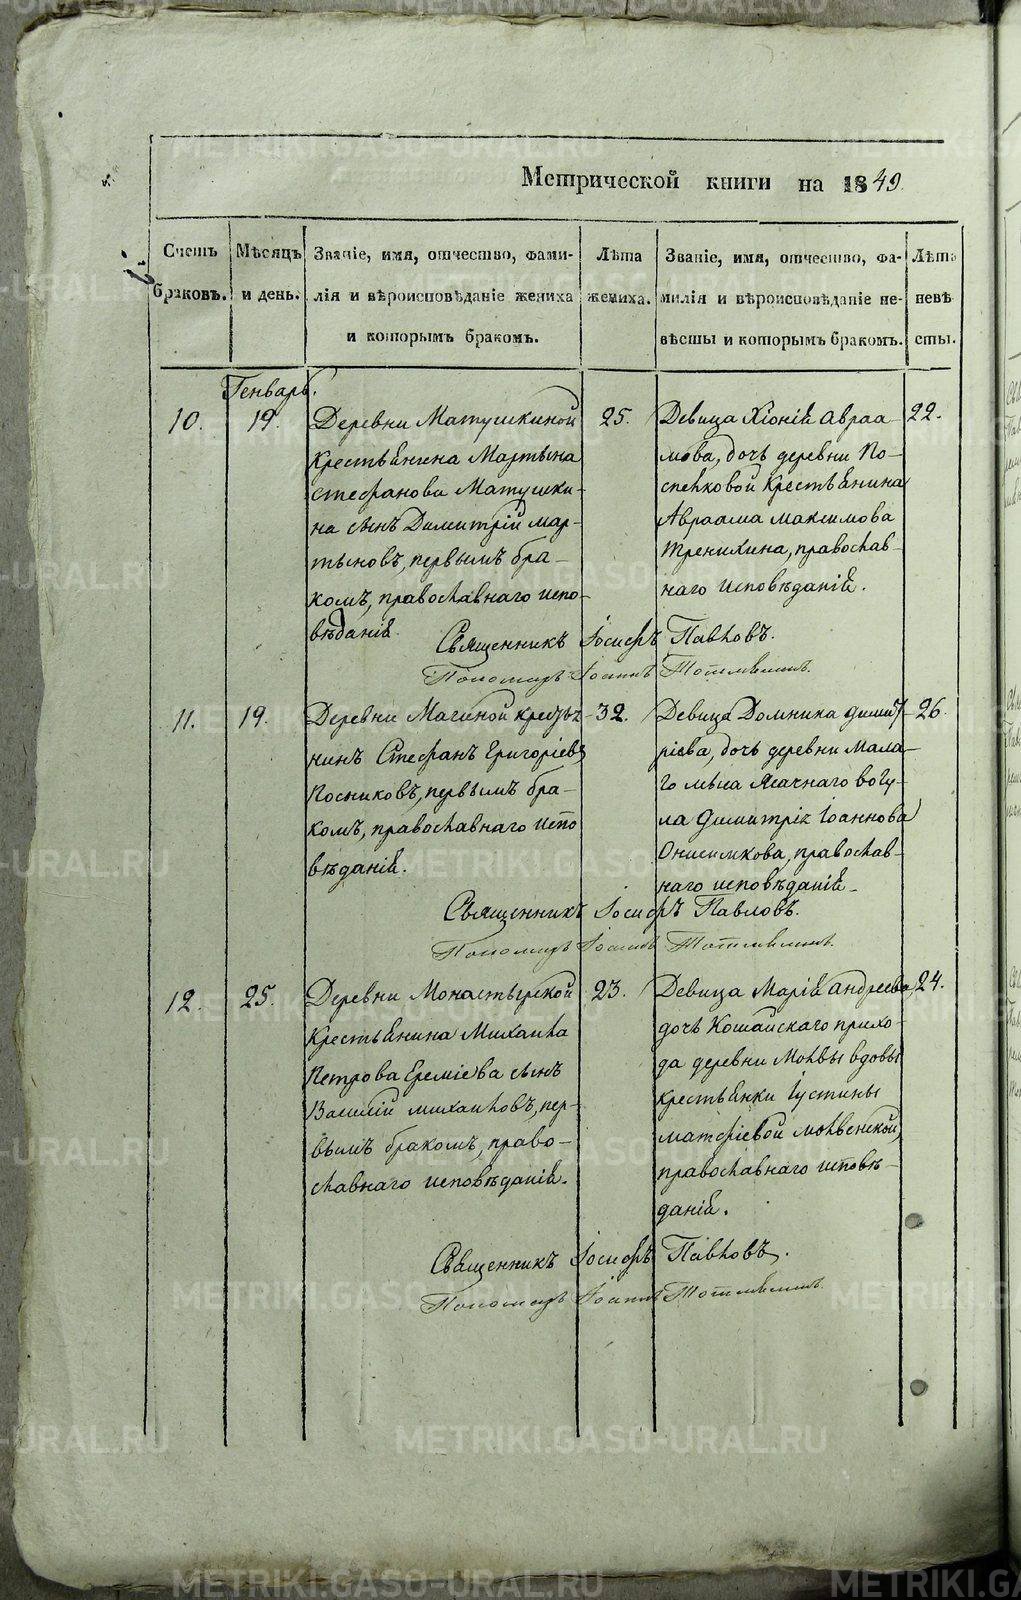 Метрической книги на 1849.
Счетъ браковъ.
Мѣсяцъ и день.
Званіе, имя, отчество, фами-
лія и вѣроисповѣданіе жениха
и которымъ бракомъ.
Лѣта жениха.
Званіе, имя, отчество, фа-
милія и вѣроисповѣданіе не-
вѣсты и которымъ бракомъ.
Лѣта невѣсты.
Генварь.
10.
19.
Деревни Матушкиной
крестьянина Мартына
Стефанова Матушки-
на сынъ Димитрій Мар-
тыновъ, первымъ бра-
комъ, православнаго испо-
вѣданія.
25.
Девица Хіонія Авраа-
мова, дочь деревни По-
спелковой крестьянина
Авраама Максимова
Тренихина, православ-
наго исповѣданія.
22.
Священникъ Іосифъ Павловъ.
Пономарь Іоаннъ
11.
19.
Деревни Магиной крестья-
нинъ Стефанъ Григоріевъ
Посниковъ, первымъ бра-
комъ, православнаго испо
вѣданія.
32.
Девица Домника Димит-
ріева, дочь деревни Мала-
го мыса Ясачнаго вогу-
ла Димитрія Іоаннова
Онисимкова, православ-
наго исповѣданія.
26.
Священникъ Іосифъ Павловъ.
Пономарь Іоаннъ
12.
25.
Деревни Монастырской
крестьянина Михаила
Петрова Ереміева сынъ
Василій Михаиловъ, пер-
вымъ бракомъ, право-
славнаго исповѣданія.
23.
Девица Марія Андреева
дочь Кошайскаго прихо-
да деревни Молвы вдовы
крестьянки Іустины
Матфіевой Молвенской,
православнаго исповѣ-
данія.
24.
Священникъ Іосифъ Павловъ.
Пономарь Іоаннъ
METRIKI.GASO-URAL.RU